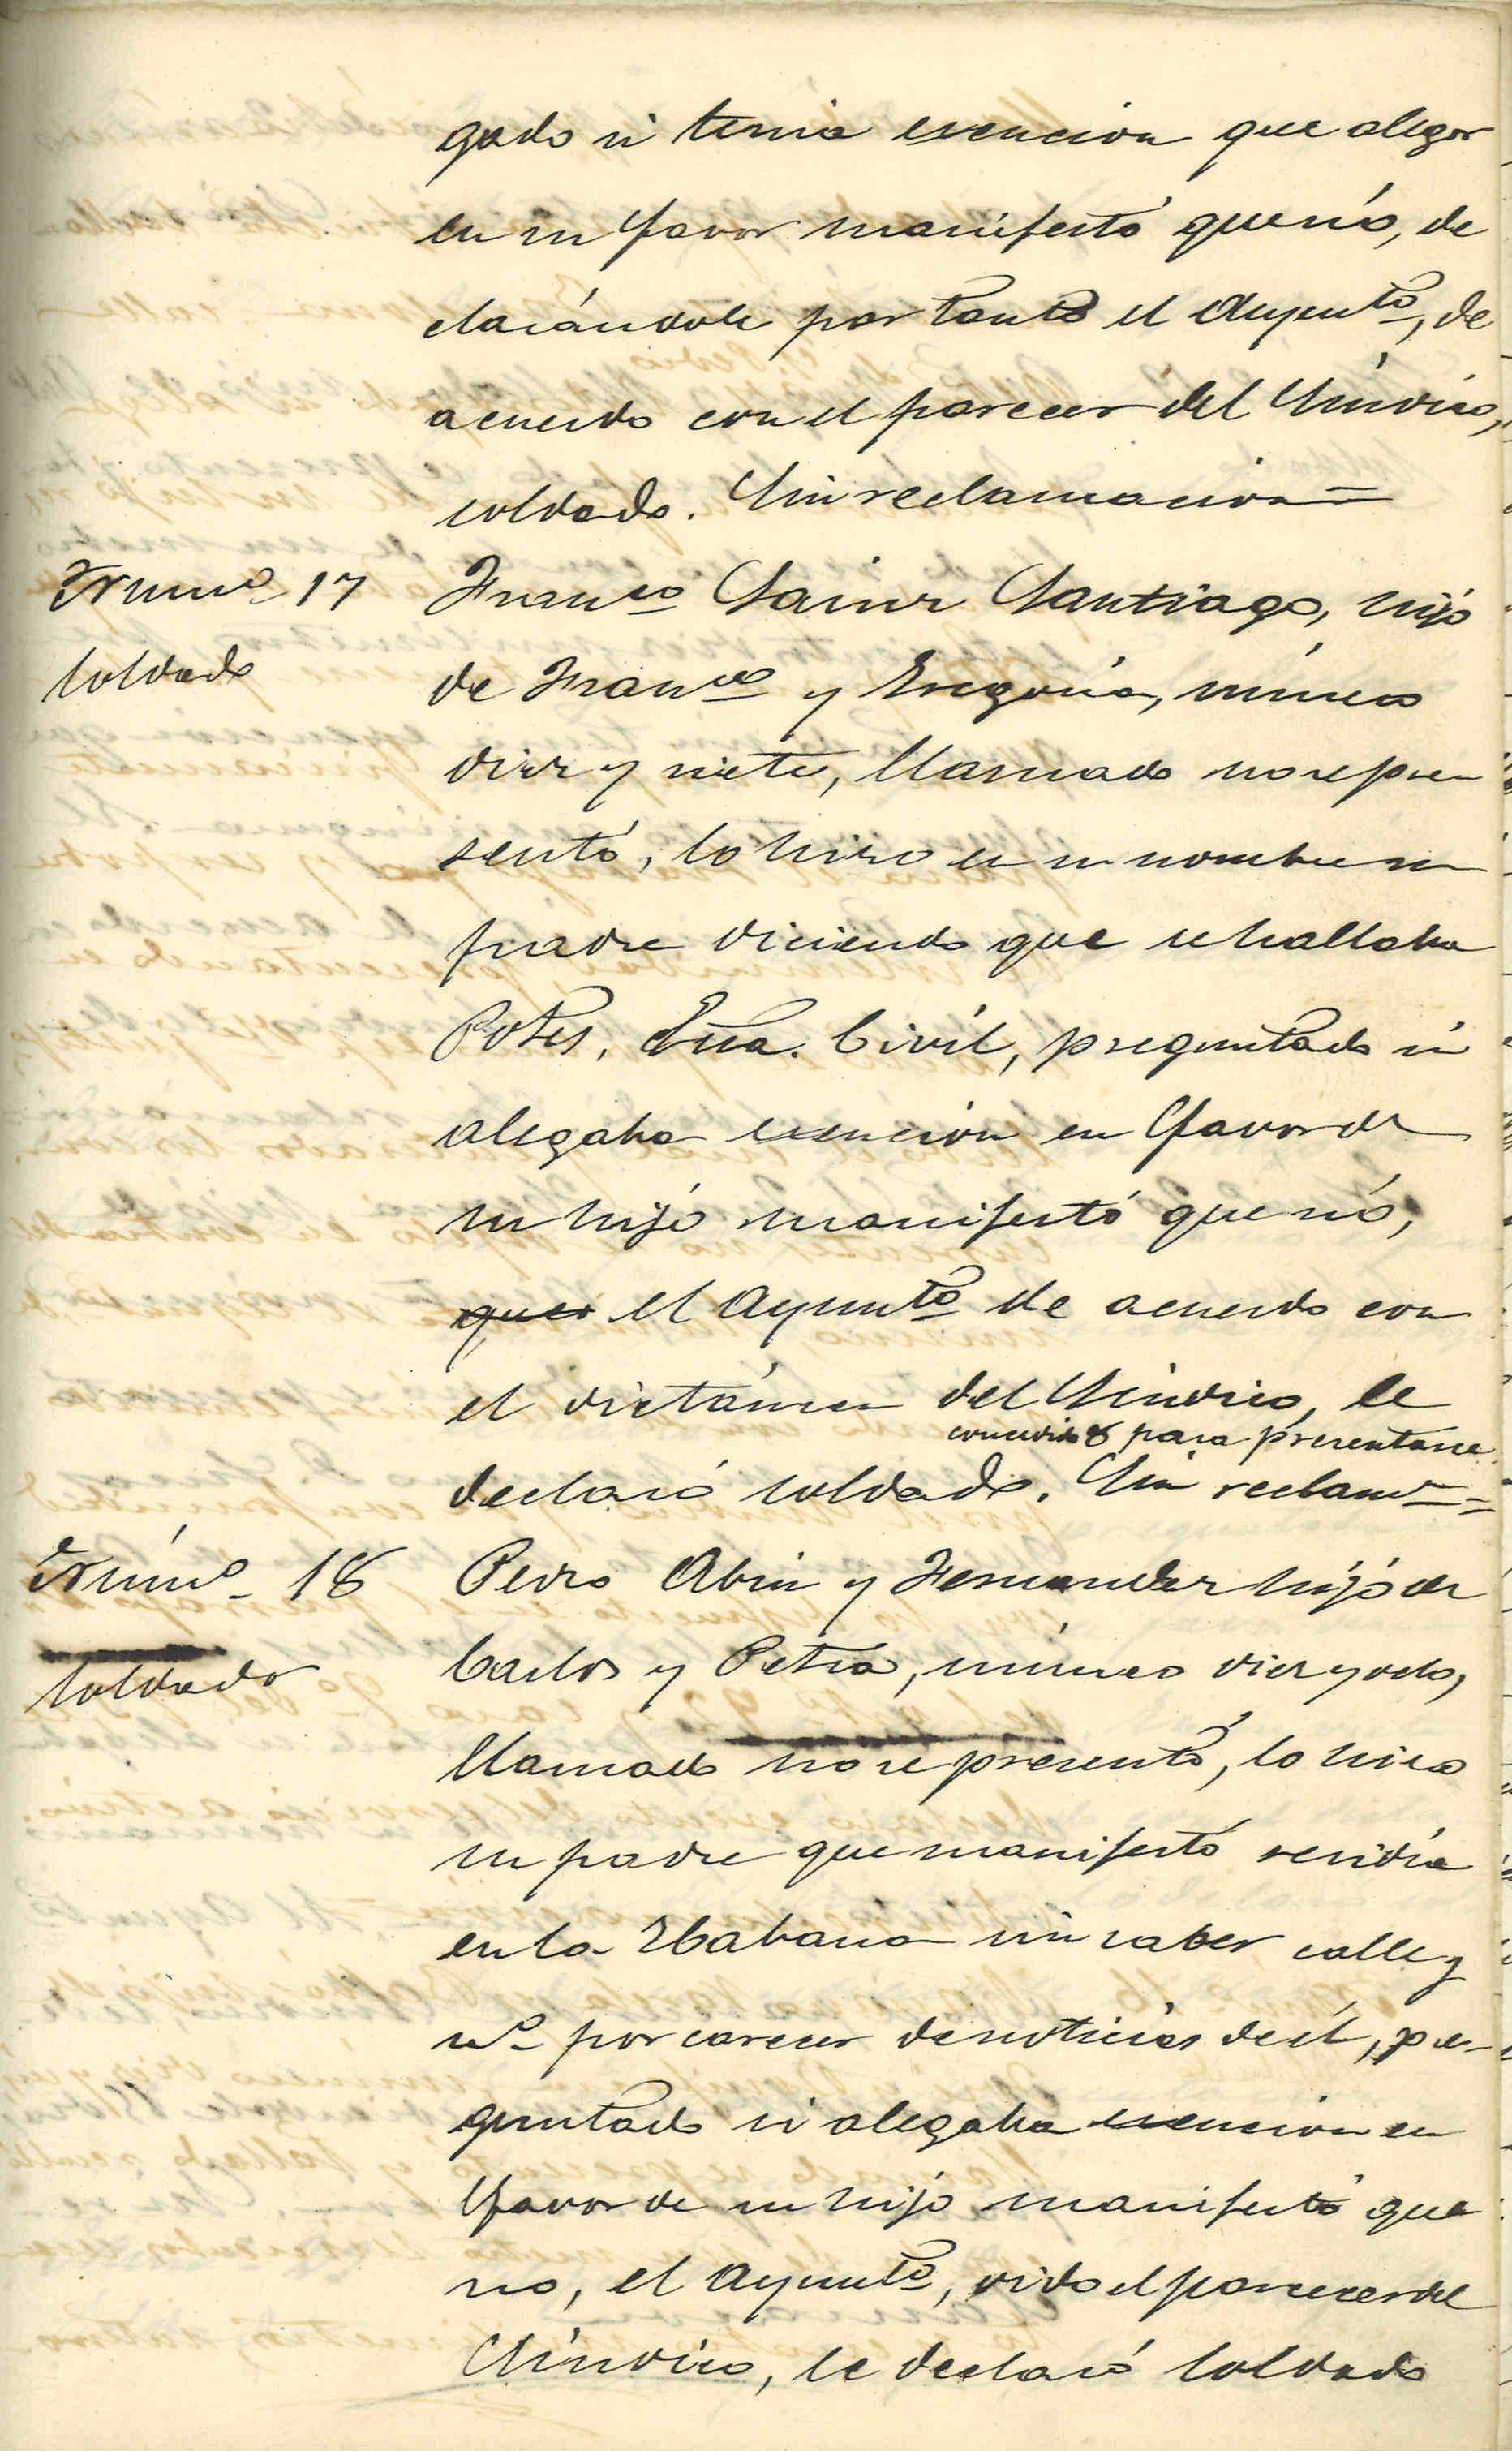 gado si tenia exencion que alegar
en su favor manifestó que nó, de
clarándole por tanto el Ayunto, de
acuerdo con el parecer del Síndico,
soldado. Sin reclamacion =
Númo 17
Soldado
Franco Sainz Santiago, hijo
de Franco y Gregoria, número
diez y siete, llamado no se pre
sentó, lo hizo en su nombre su
padre diciendo que se hallaba
Potes, Gua. Civil, preguntado si
alegaba exencion en favor de
su hijo manifestó que nó,
el Ayunto de acuerdo con
el dictámen del Síndico, le
para presentarse
declaró soldado. Sin reclamn =
Númo 18
Soldado
Pedro Abin y Fernandez hijo de
Carlos y Petra, número diez y ocho,
llamado no se presentó, lo hizo
su padre que manifestó residia
en la Habana sin saber calle y
no por carecer de noticias de él, pre-
guntado si alegaba exencion en
favor de su hijo manifestó que
no, el Ayunto, oido el parecer del
Síndico, le declaró soldado